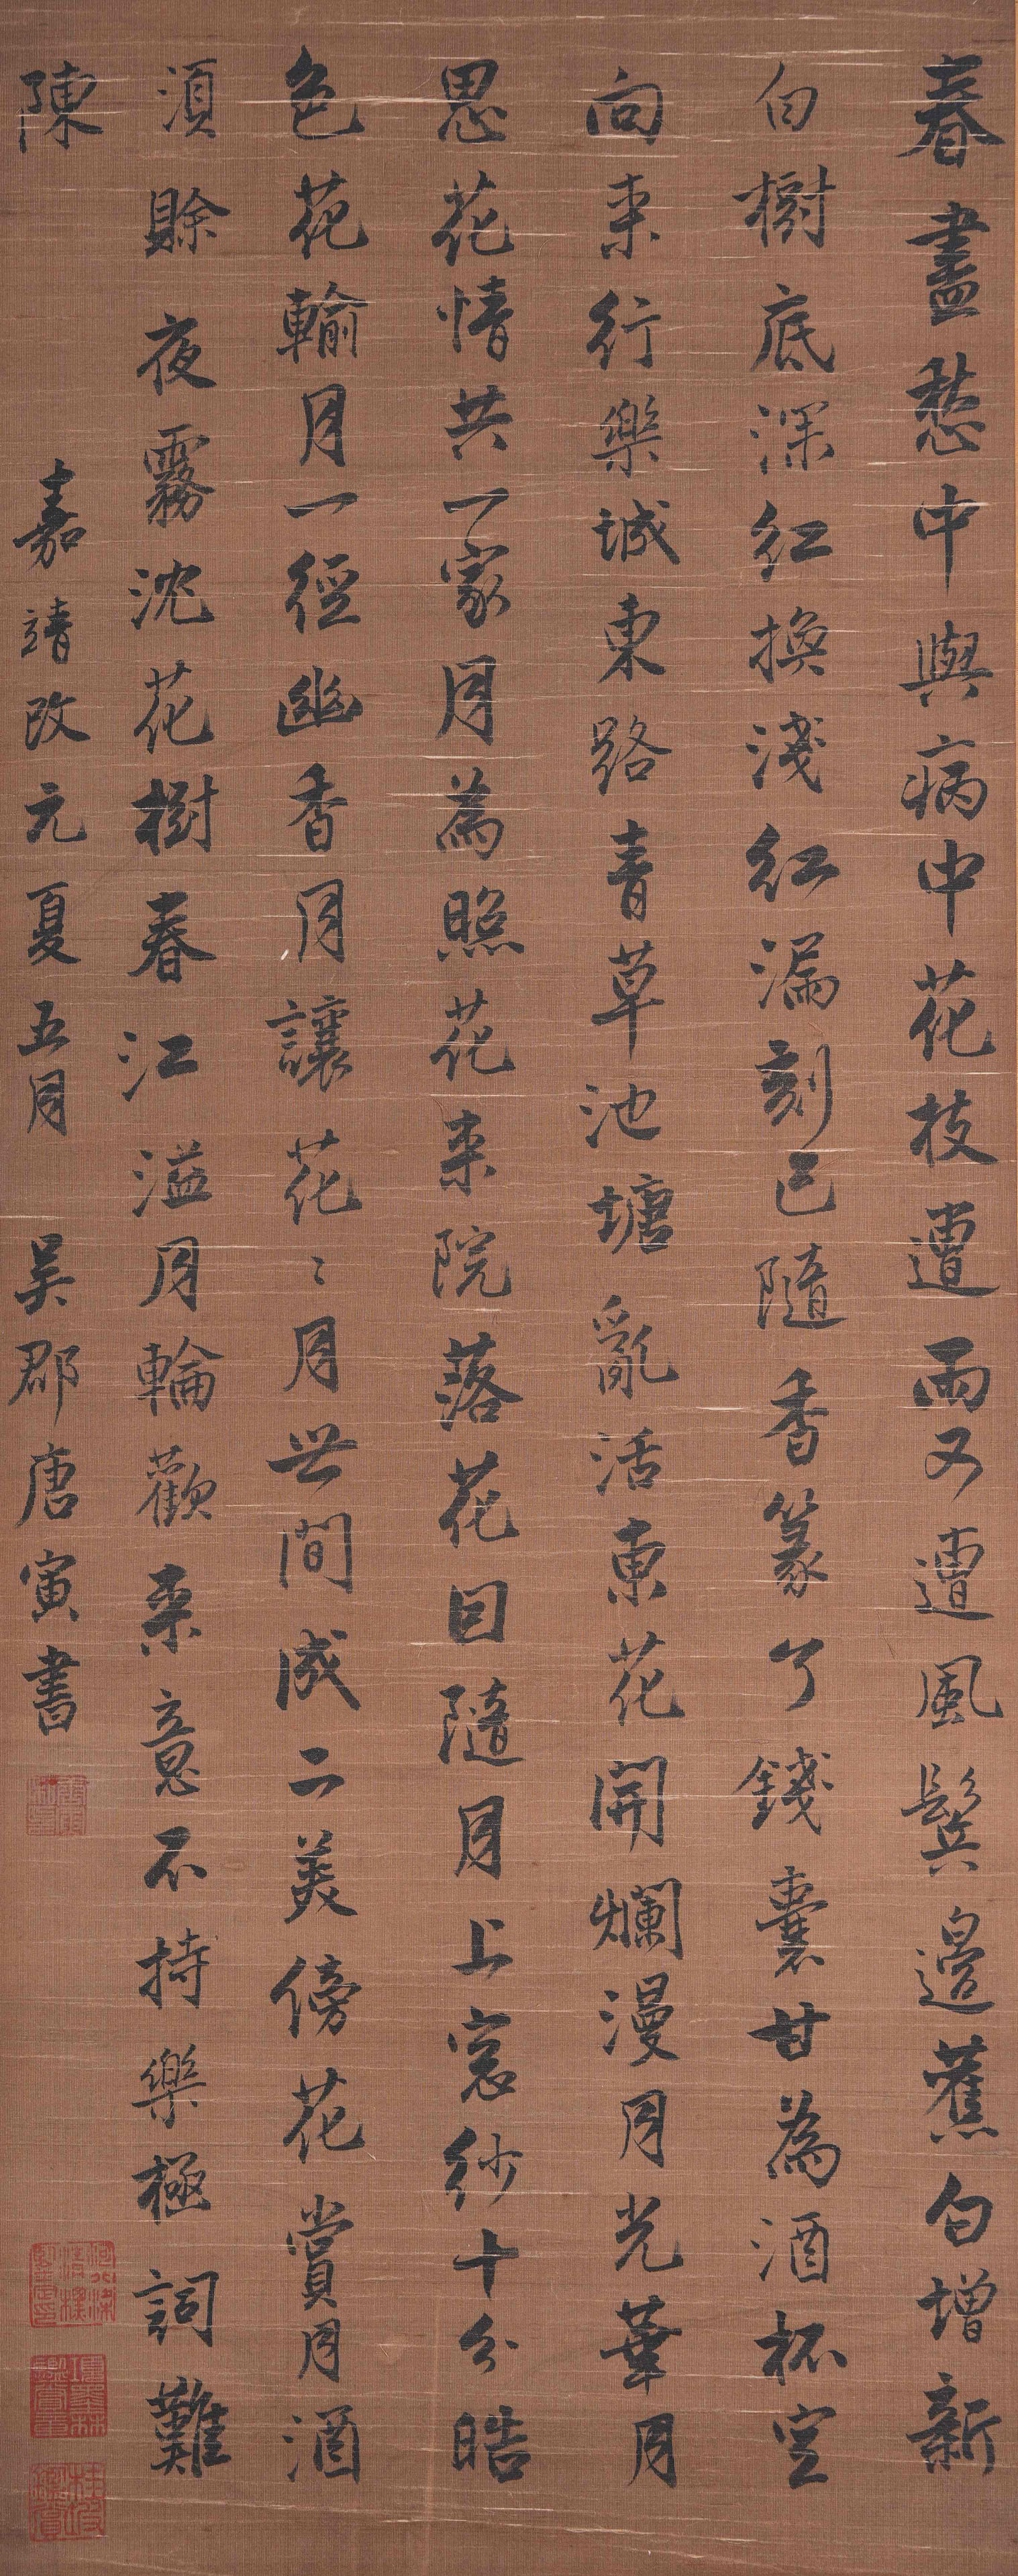 春盡愁中與病中花枝遭雨又遭風鬂邊舊白增新
白樹底深紅換淺紅漏刻已隨香篆了錢囊甘為酒杯空
向来行樂城東路青草池塘亂活東花開爛漫月光華月
思花情共一家月為照花来院落花因隨月上窓紗十分皓
色花輸月一徑幽香月讓花〻月世間成二美傍花賞月酒
須賒夜霧沈花樹春江溢月輪歡来意不持樂極詞難
陳 嘉靖改元夏五月 吳郡唐寅書